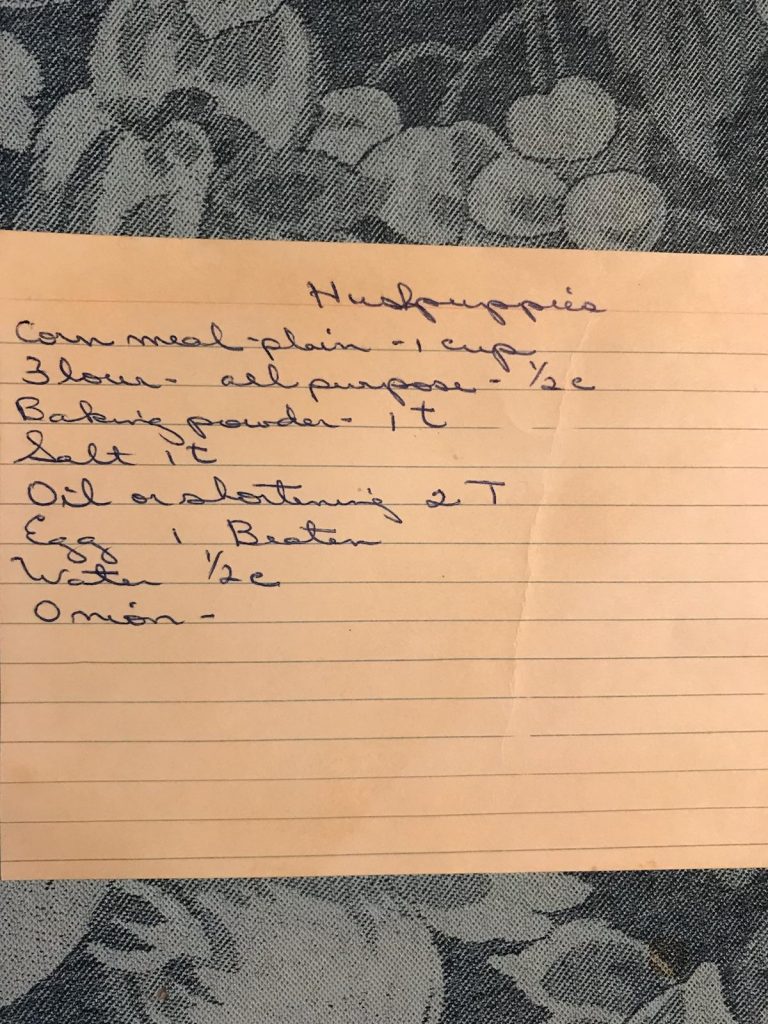 Hushpuppies
Corn meal-plain - 1 cup
Flour - all purpose - 1/2 c
Baking powder - 1 t
Salt 1 t
Oil or shortening 2 T
Egg 1 Beaten
Water 1/2 c
Onion -